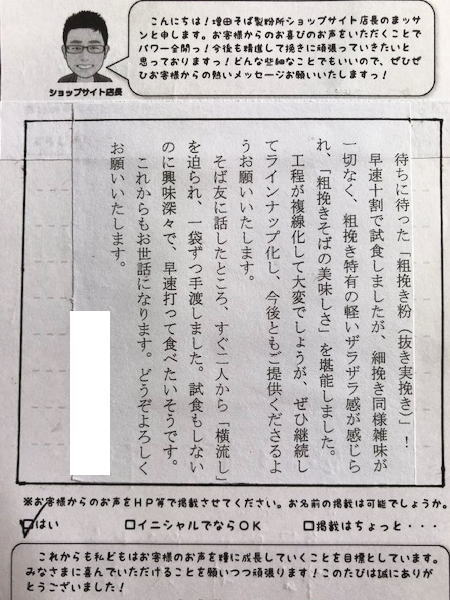 こんにちは！増田そば製粉所ショップサイト店長のまッサ
ンと申します。お客様からのお喜びのお声をいただくことで
パワー全開っ！今後も精進して挽きに頑張っていきたいと
思っておりますっ！どんな些細なことでもいいので、ぜひぜ
ひお客様からの熱いメッセージお願いいたしますっ！
ショップサイト店長
待ちに待った「粗挽き粉（抜き実挽き）」！
早速十割で試食しましたが、細挽き同様雑味が
一切なく、粗挽き特有の軽いザラザラ感が感じら
れ、「粗挽きそばの美味しさ」を堪能しました。
工程が複線化して大変でしょうが、ぜひ継続し
てラインナップ化し、今後ともご提供くださるよ
うお願いいたします。
そば友に話したところ、すぐ二人から「横流し」
を迫られ、一袋ずつ手渡しました。試食もしない
のに興味深々で、早速打って食べたいそうです。
これからもお世話になります。どうぞよろしく
お願いいたします。
※お客様からのお声をＨＰ等で掲載させてください。お名前の掲載は可能でしょうか。
☑はい　□イニシャルでならＯＫ　□掲載はちょっと・・・
これからも私どもはお客様のお声を糧に成長していくことを目標としています。
みなさまに喜んでいただけることを願いつつ頑張ります！このたびは誠にありが
とうございました！